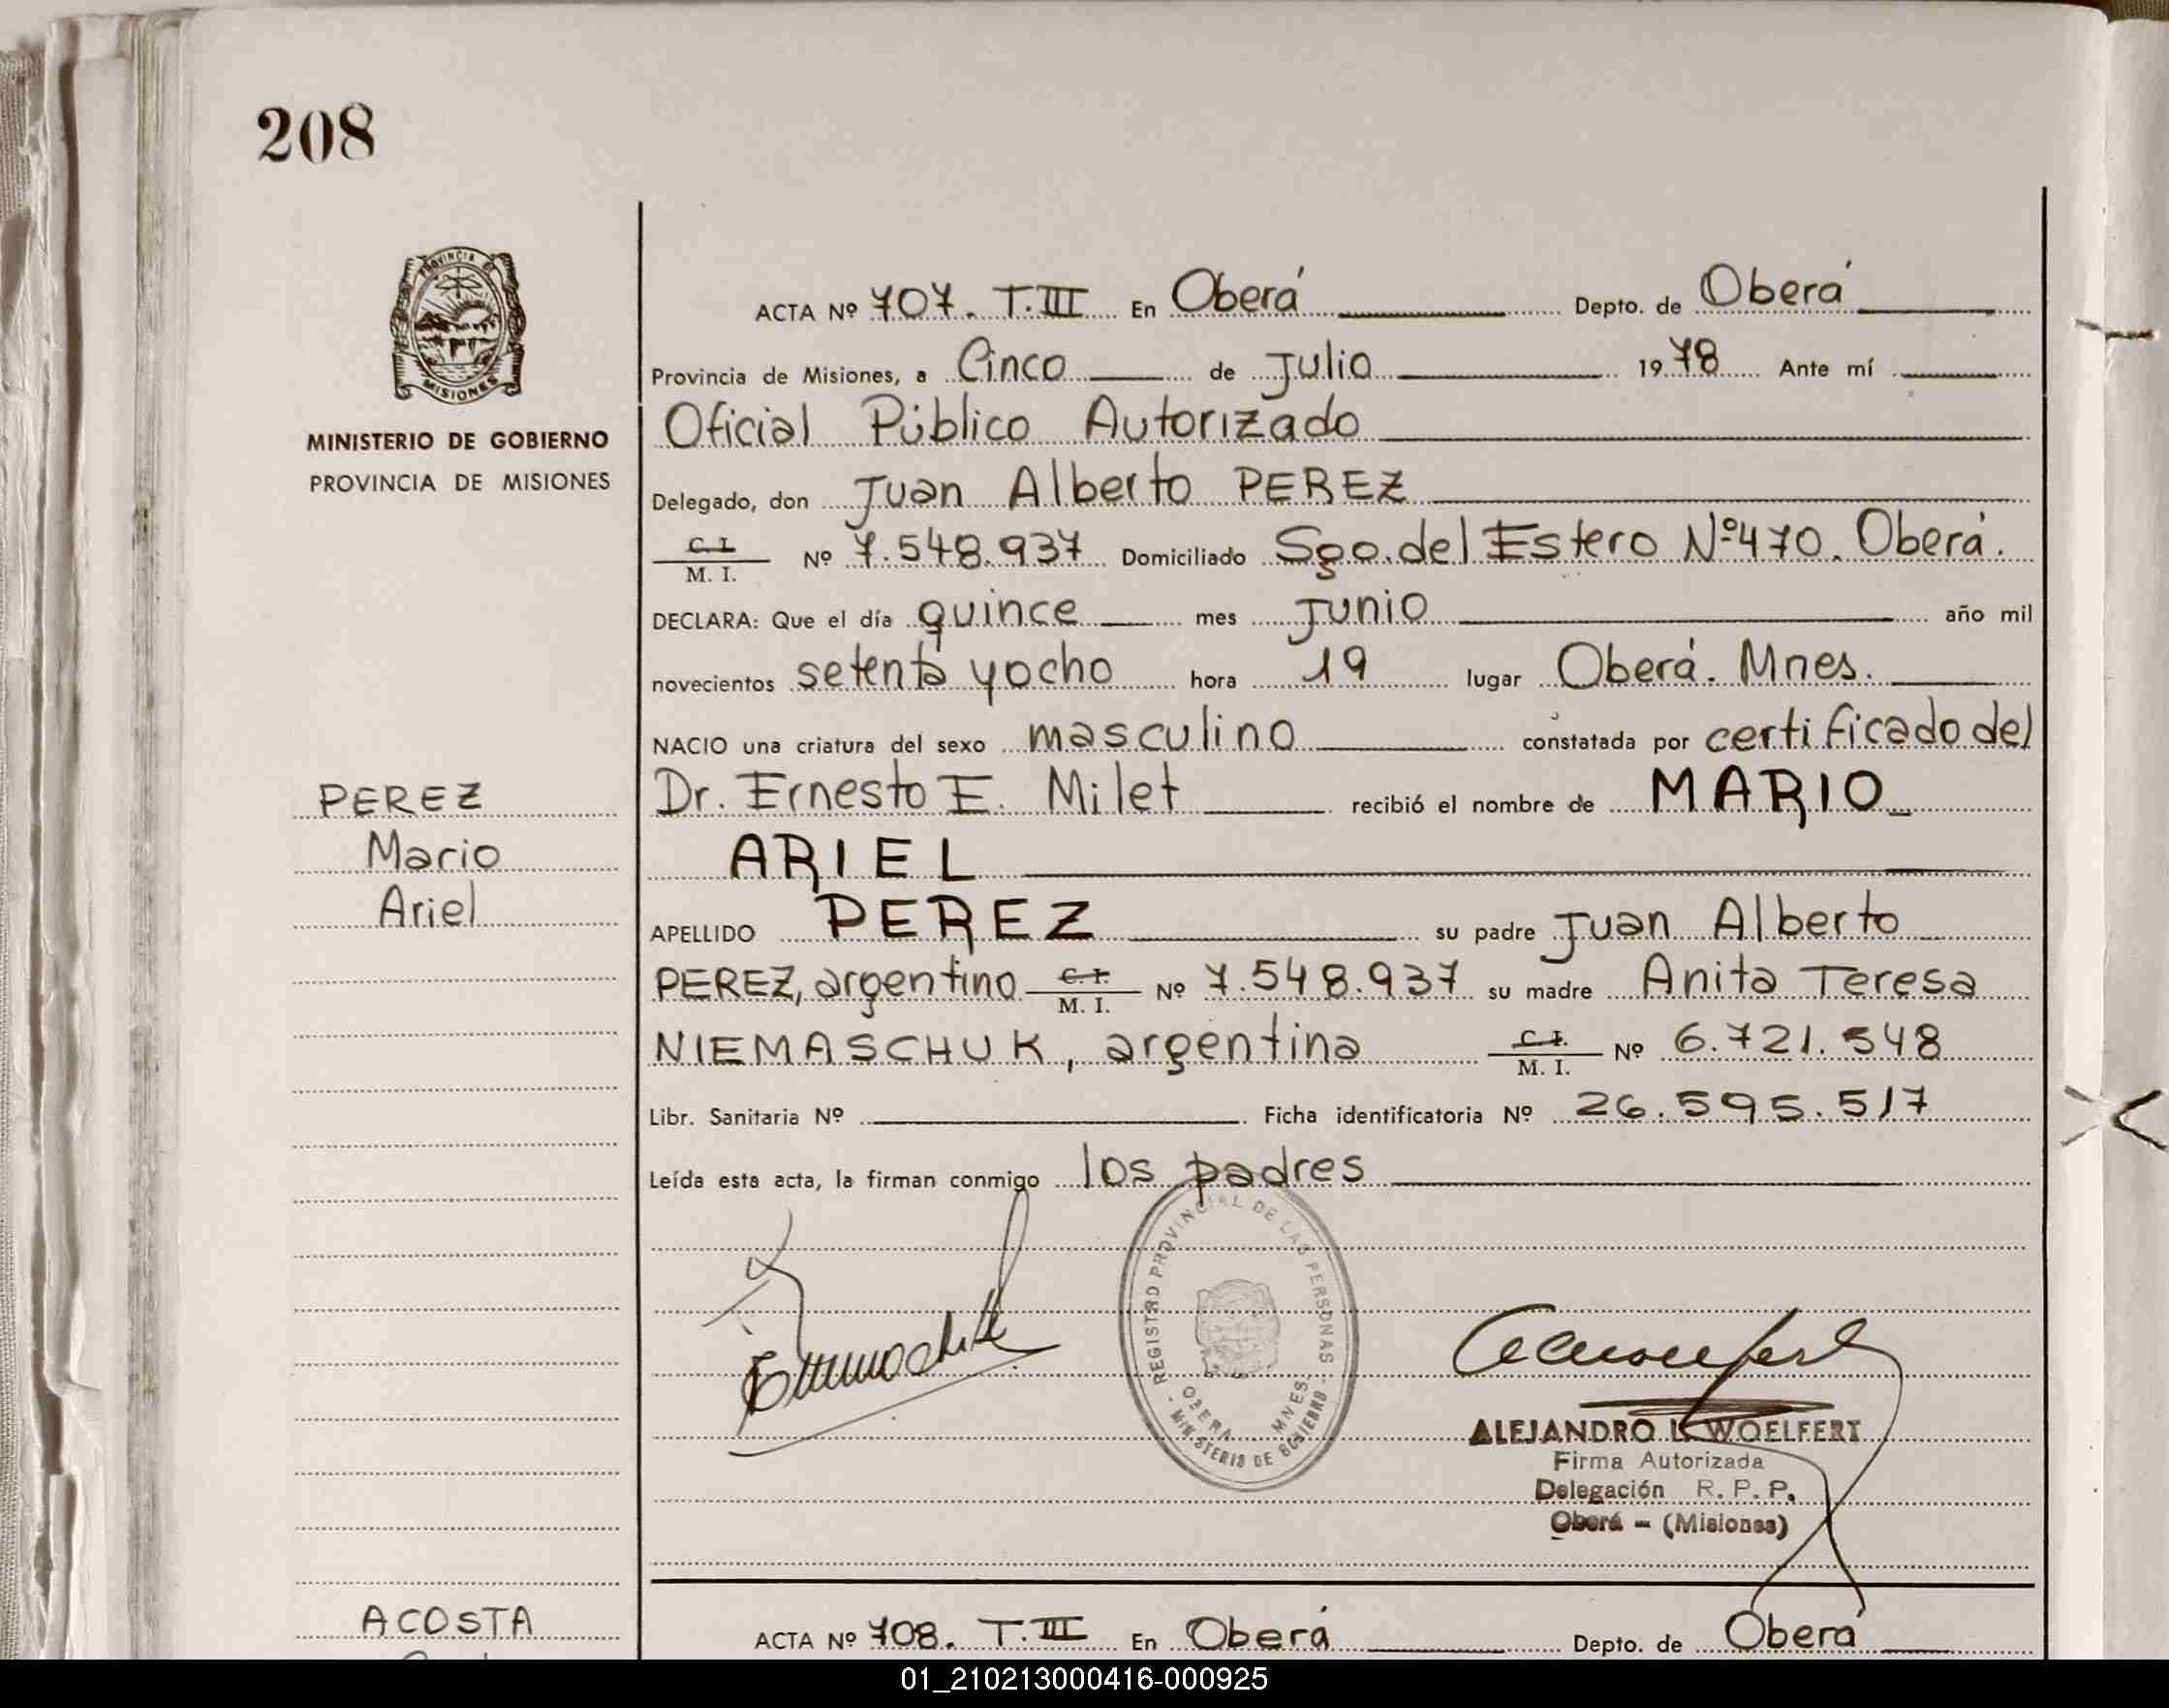 208
PROVINCIA DE
MISIONES
MINISTERIO DE GOBIERNO
PROVINCIA DE MISIONES
ACTA Nº 707. T.III En Oberá Depto. de Oberá
Provincia de Misiones, a Cinco de Julio 1978 Ante mí
Oficial Público Autorizado
Delegado, don Juan Alberto PEREZ
C. I.
M. I. Nº 7.548.937 Domiciliado Sgo. del Estero Nº 470. Oberá.
DECLARA: Que el día quince mes Junio año mil
novecientos setenta y ocho hora 19 lugar Oberá. Mnes.
NACIO una criatura del sexo masculino constatada por certificado del
Dr. Ernesto E. Milet recibió el nombre de MARIO
ARIEL
APELLIDO PEREZ su padre Juan Alberto
PEREZ, argentino C. I. M. I. Nº 7.548.937 su madre Anita Teresa
NIEMASCHUK, argentina C. I. M. I. Nº 6.721.548
Libr. Sanitaria Nº Ficha identificatoria Nº 26.595.517
Leída esta acta, la firman conmigo los padres
PEREZ
Mario
Ariel
REGISTRO PROVINCIAL DE LAS PERSONAS
OBERA MNES.
MINISTERIO DE GOBIERNO
ALEJANDRO L. WOELFERT
Firma Autorizada
Delegación R. P. P.
Oberá - (Misiones)
ACOSTA
ACTA Nº 708. T.III En Oberá Depto. de Oberá
01_210213000416-000925